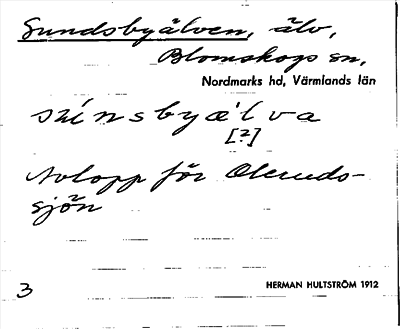 Sundsbyälven, älv,
Blomskogs sn,
Nordmarks hd, Värmlands län
[?]
Avlopp för
sjön
3
HERMAN HULTSTRÖM 1912